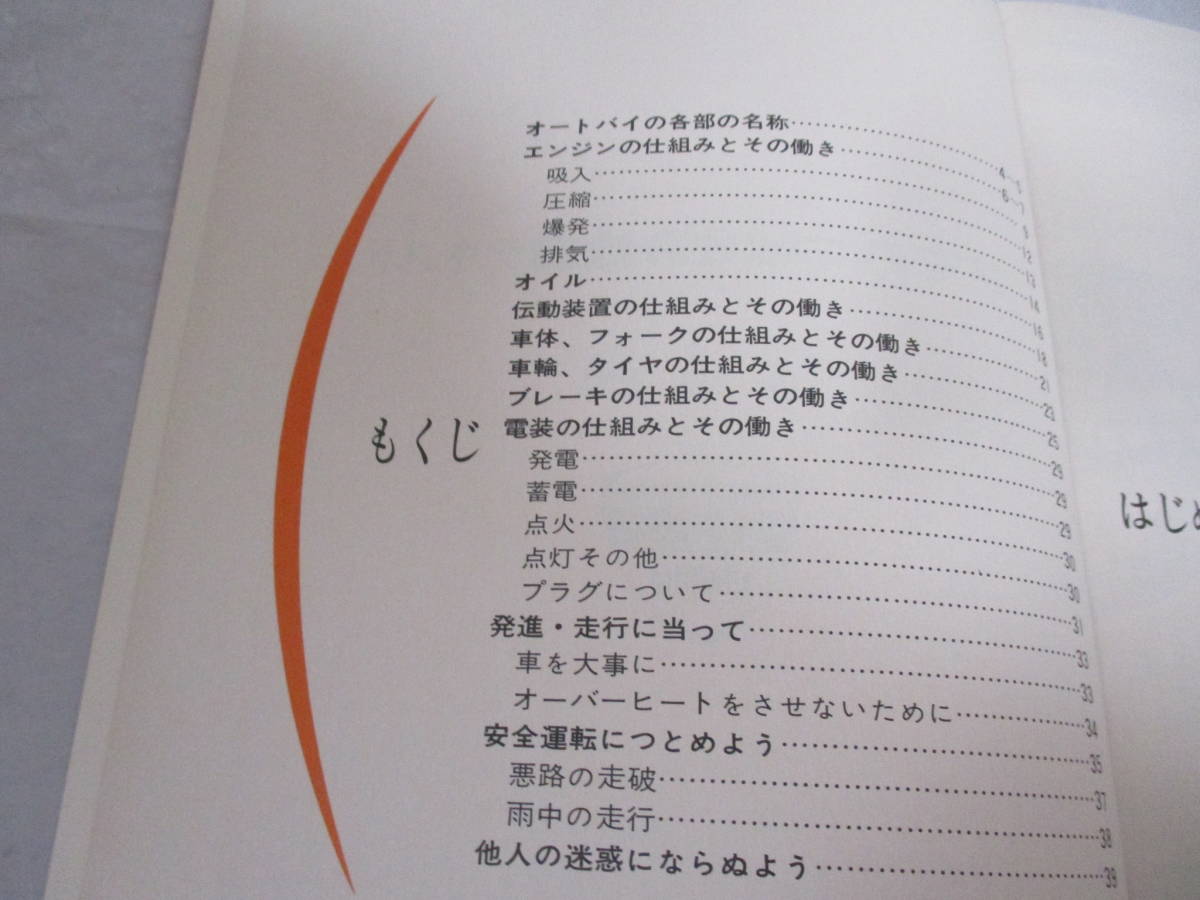 もくじ
オートバイの各部の名称……………………4～5
エンジンの仕組みとその働き……………………6～7
吸入……………………9
圧縮……………………12
爆発……………………13
排気……………………14
オイル……………………16
伝動装置の仕組みとその働き……………………18
車体、フォークの仕組みとその働き……………………21
車輪、タイヤの仕組みとその働き……………………23
ブレーキの仕組みとその働き……………………25
電装の仕組みとその働き……………………29
発電……………………29
蓄電……………………29
点火……………………30
点灯その他……………………30
プラグについて……………………31
発進・走行に当って……………………33
車を大事に……………………33
オーバーヒートをさせないために……………………34
安全運転につとめよう……………………35
悪路の走破……………………37
雨中の走行……………………38
他人の迷惑にならぬよう……………………39
はじめ